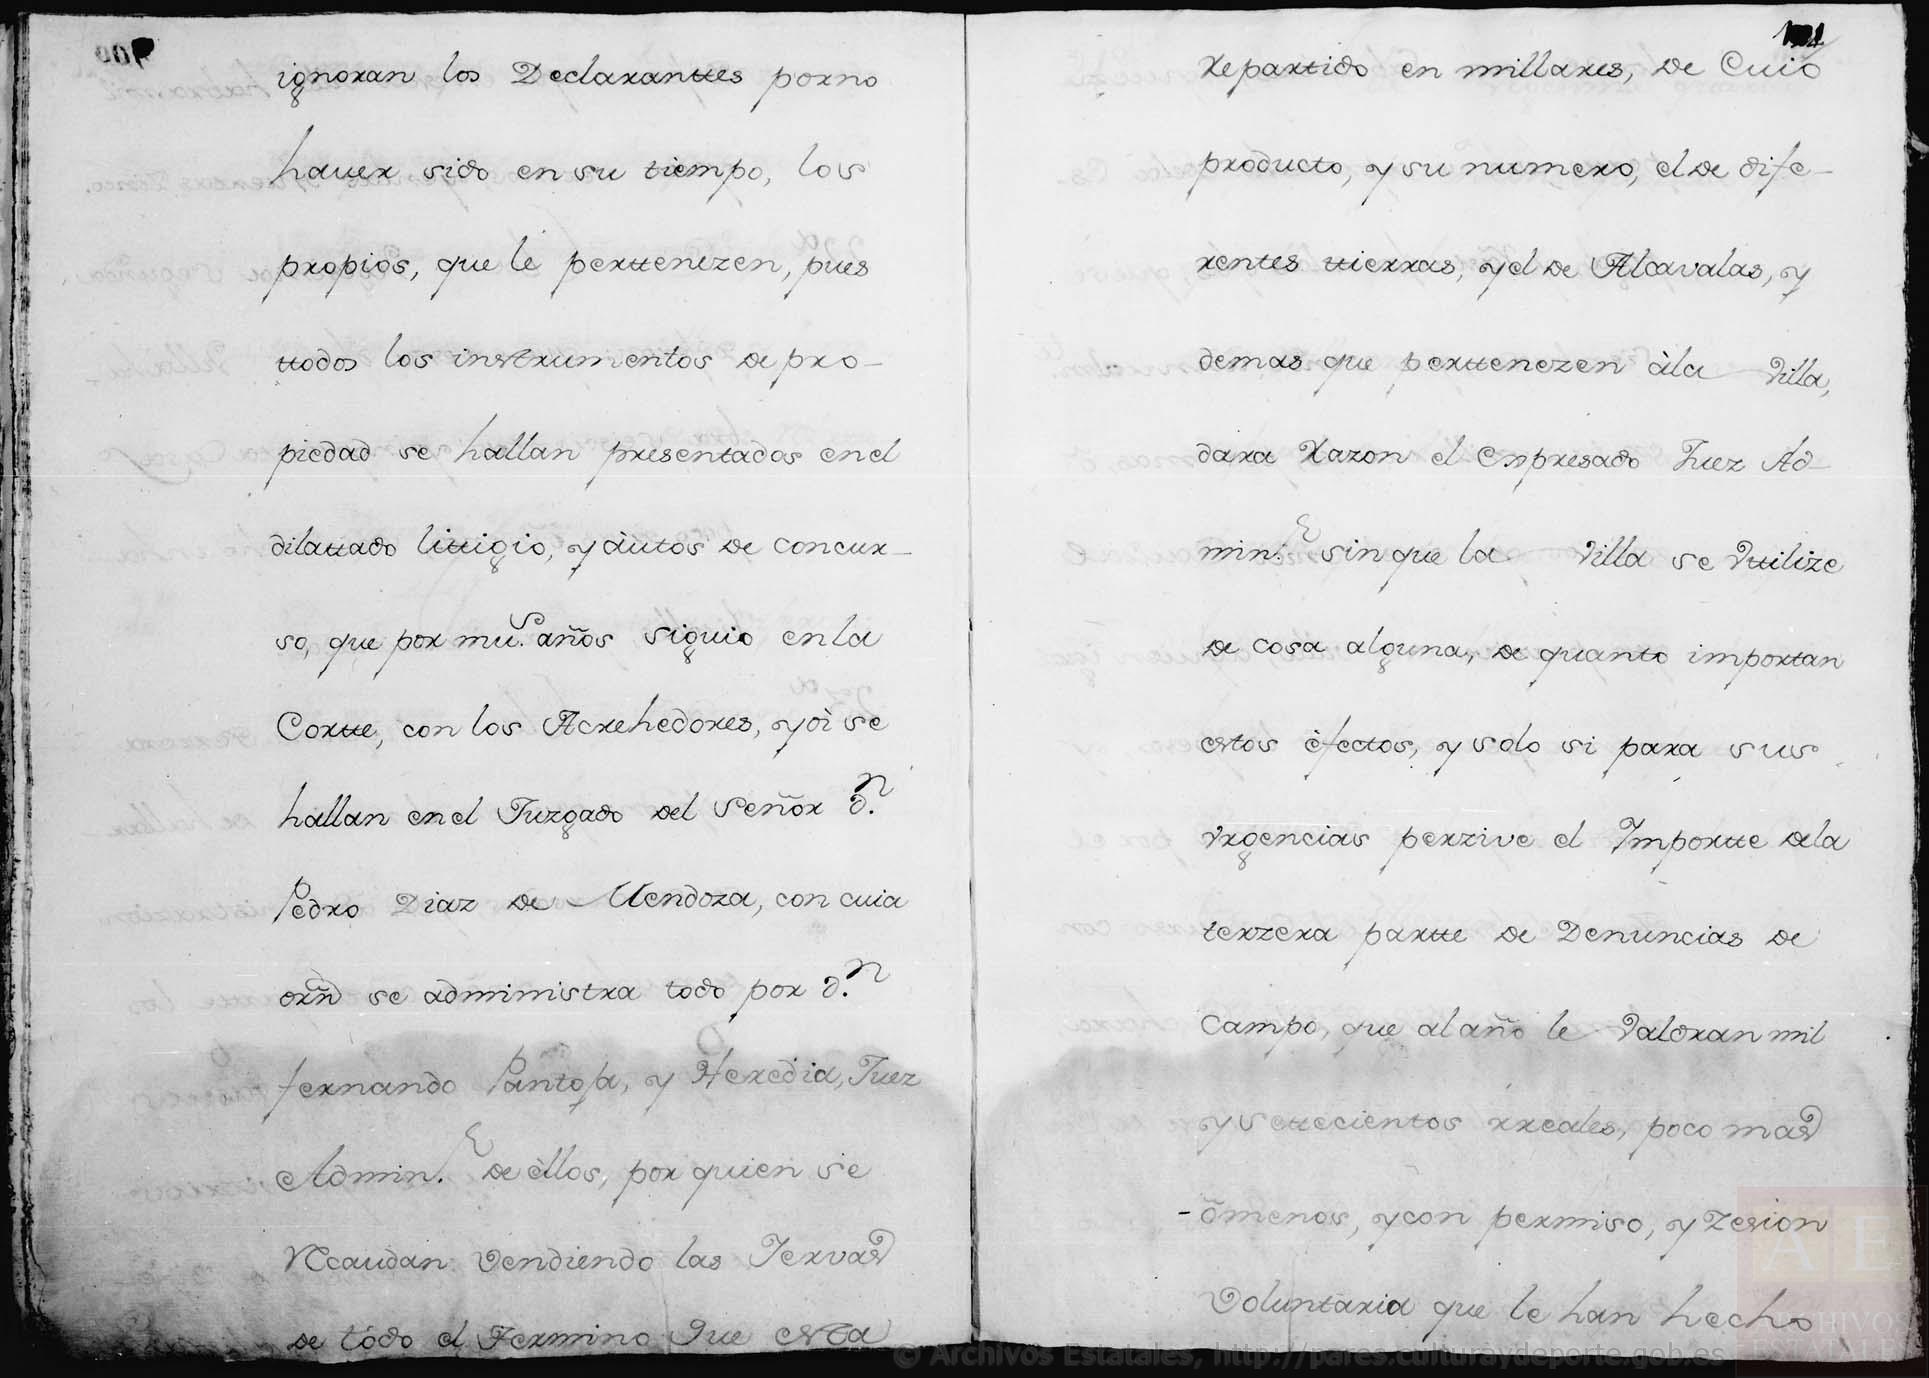 ignoran los Declaranttes porno
haver sido en su tiempo, los
propios, que le perttenezen, pues
ttodos los instrumentos de pro-
piedad se hallan presentados en el
dilattado littigio, y àutos de concur-
so, que por mu.s años siguio en la
Cortte, con los Acrehedores, y oi se
hallan en el Juzgado del Señor d.n
Pedro Diaz de Mendoza, con cuia
orñ se administra todo por d.n
fernando Pantoja, y Heredia, Juez
Admin.r de èllos, por quien se
Recaudan vendiendo las Jervas
de todo el Termino que esta
Repartido en millares, de Cuio
producto, y su numero, el de dife-
rentes ttierras, y el de Alcavalas, y
demas que perttenezen àla Villa,
dara Razon el Expresado Juez Ad-
min.r sin que la Villa se Vttilize
de cosa alguna, de quanto importan
estos èfectos, y solo si para sus
Vrgencias perzive el Importte dela
terzera partte de Denuncias de
Campo, que al año le Valdran mil
y settecientos rreales, poco mas
òmenos, y con permiso, y zesion
Voluntaria que le han hecho
© Archivos Estatales, http://pares.culturaydeporte.gob.es
AE
ARCHIVOS
ESTATALES